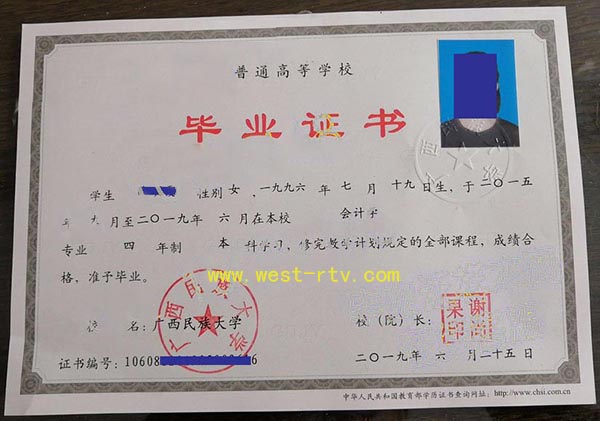 普通高等学校
毕业证书
学生 性别 女，一九九六 年 七 月 十九 日生，于 二〇一五
年 九 月至 二〇一九 年 六 月在本校 会计学
专业 四 年制 本 科学习，修完教学计划规定的全部课程，成绩合
格，准予毕业。
www.west-rtv.com
广西民族大学
校 名：广西民族大学
校（院）长：
证书编号：10608
二〇一九年 六 月二十五日
中华人民共和国教育部学历证书查询网址：http://www.chsi.com.cn